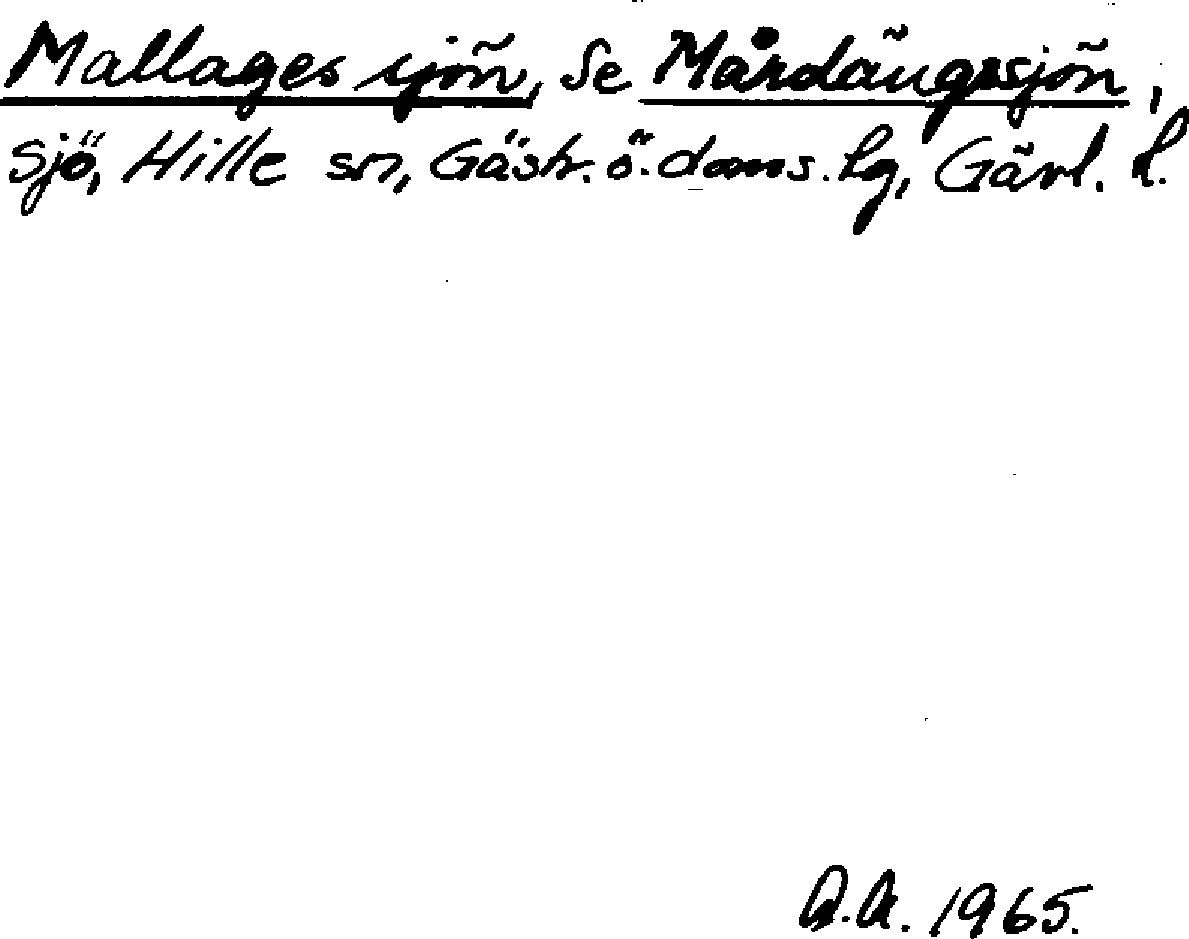 Mallages sjön, Se Mårdängssjön,
sjö, Hille sn, Gästr. ö. doms. lg, Gävl. l.
A. 1965.